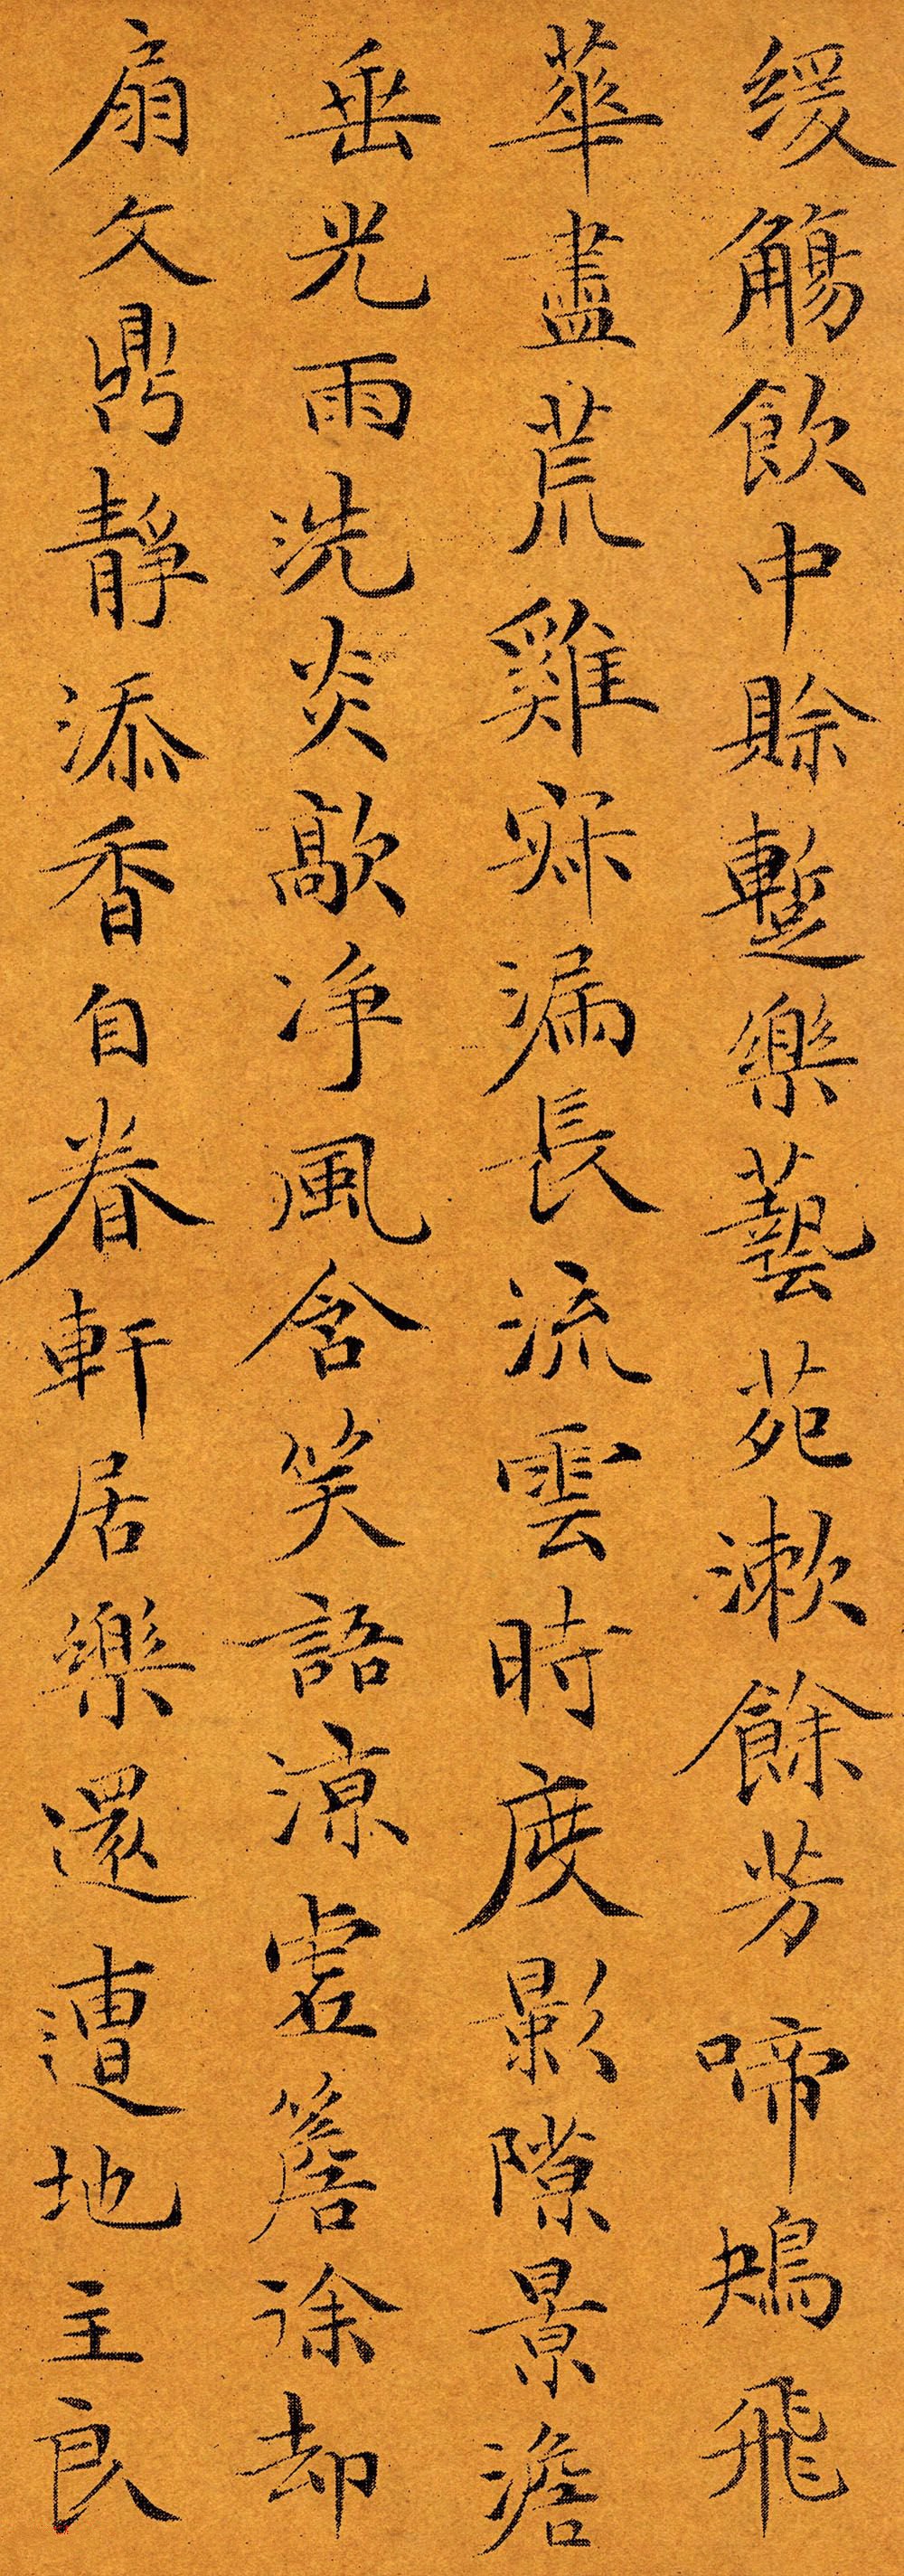 缓觴飲中賖蹔樂藝苑漱餘芳啼鴂飛
華盡荒雞寐漏長流雲時度影隙景澹
垂光雨洗炎歊净風含笑語涼虛簷徐却
扇文鼎靜添香自眷軒居樂還遭地主良